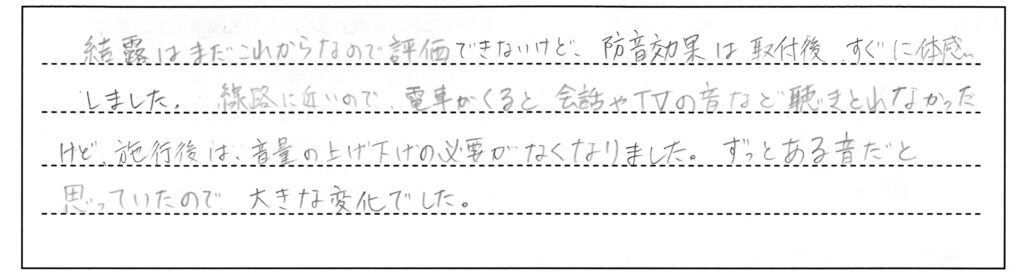 結露はまだこれからなので評価できないけど、防音効果は取付後、すぐに体感
しました。線路に近いので、電車がくると会話やTVの音など聴きとれなかった
けど、施行後は、音量の上げ下げの必要がなくなりました。ずっとある音だと
思っていたので、大きな変化でした。